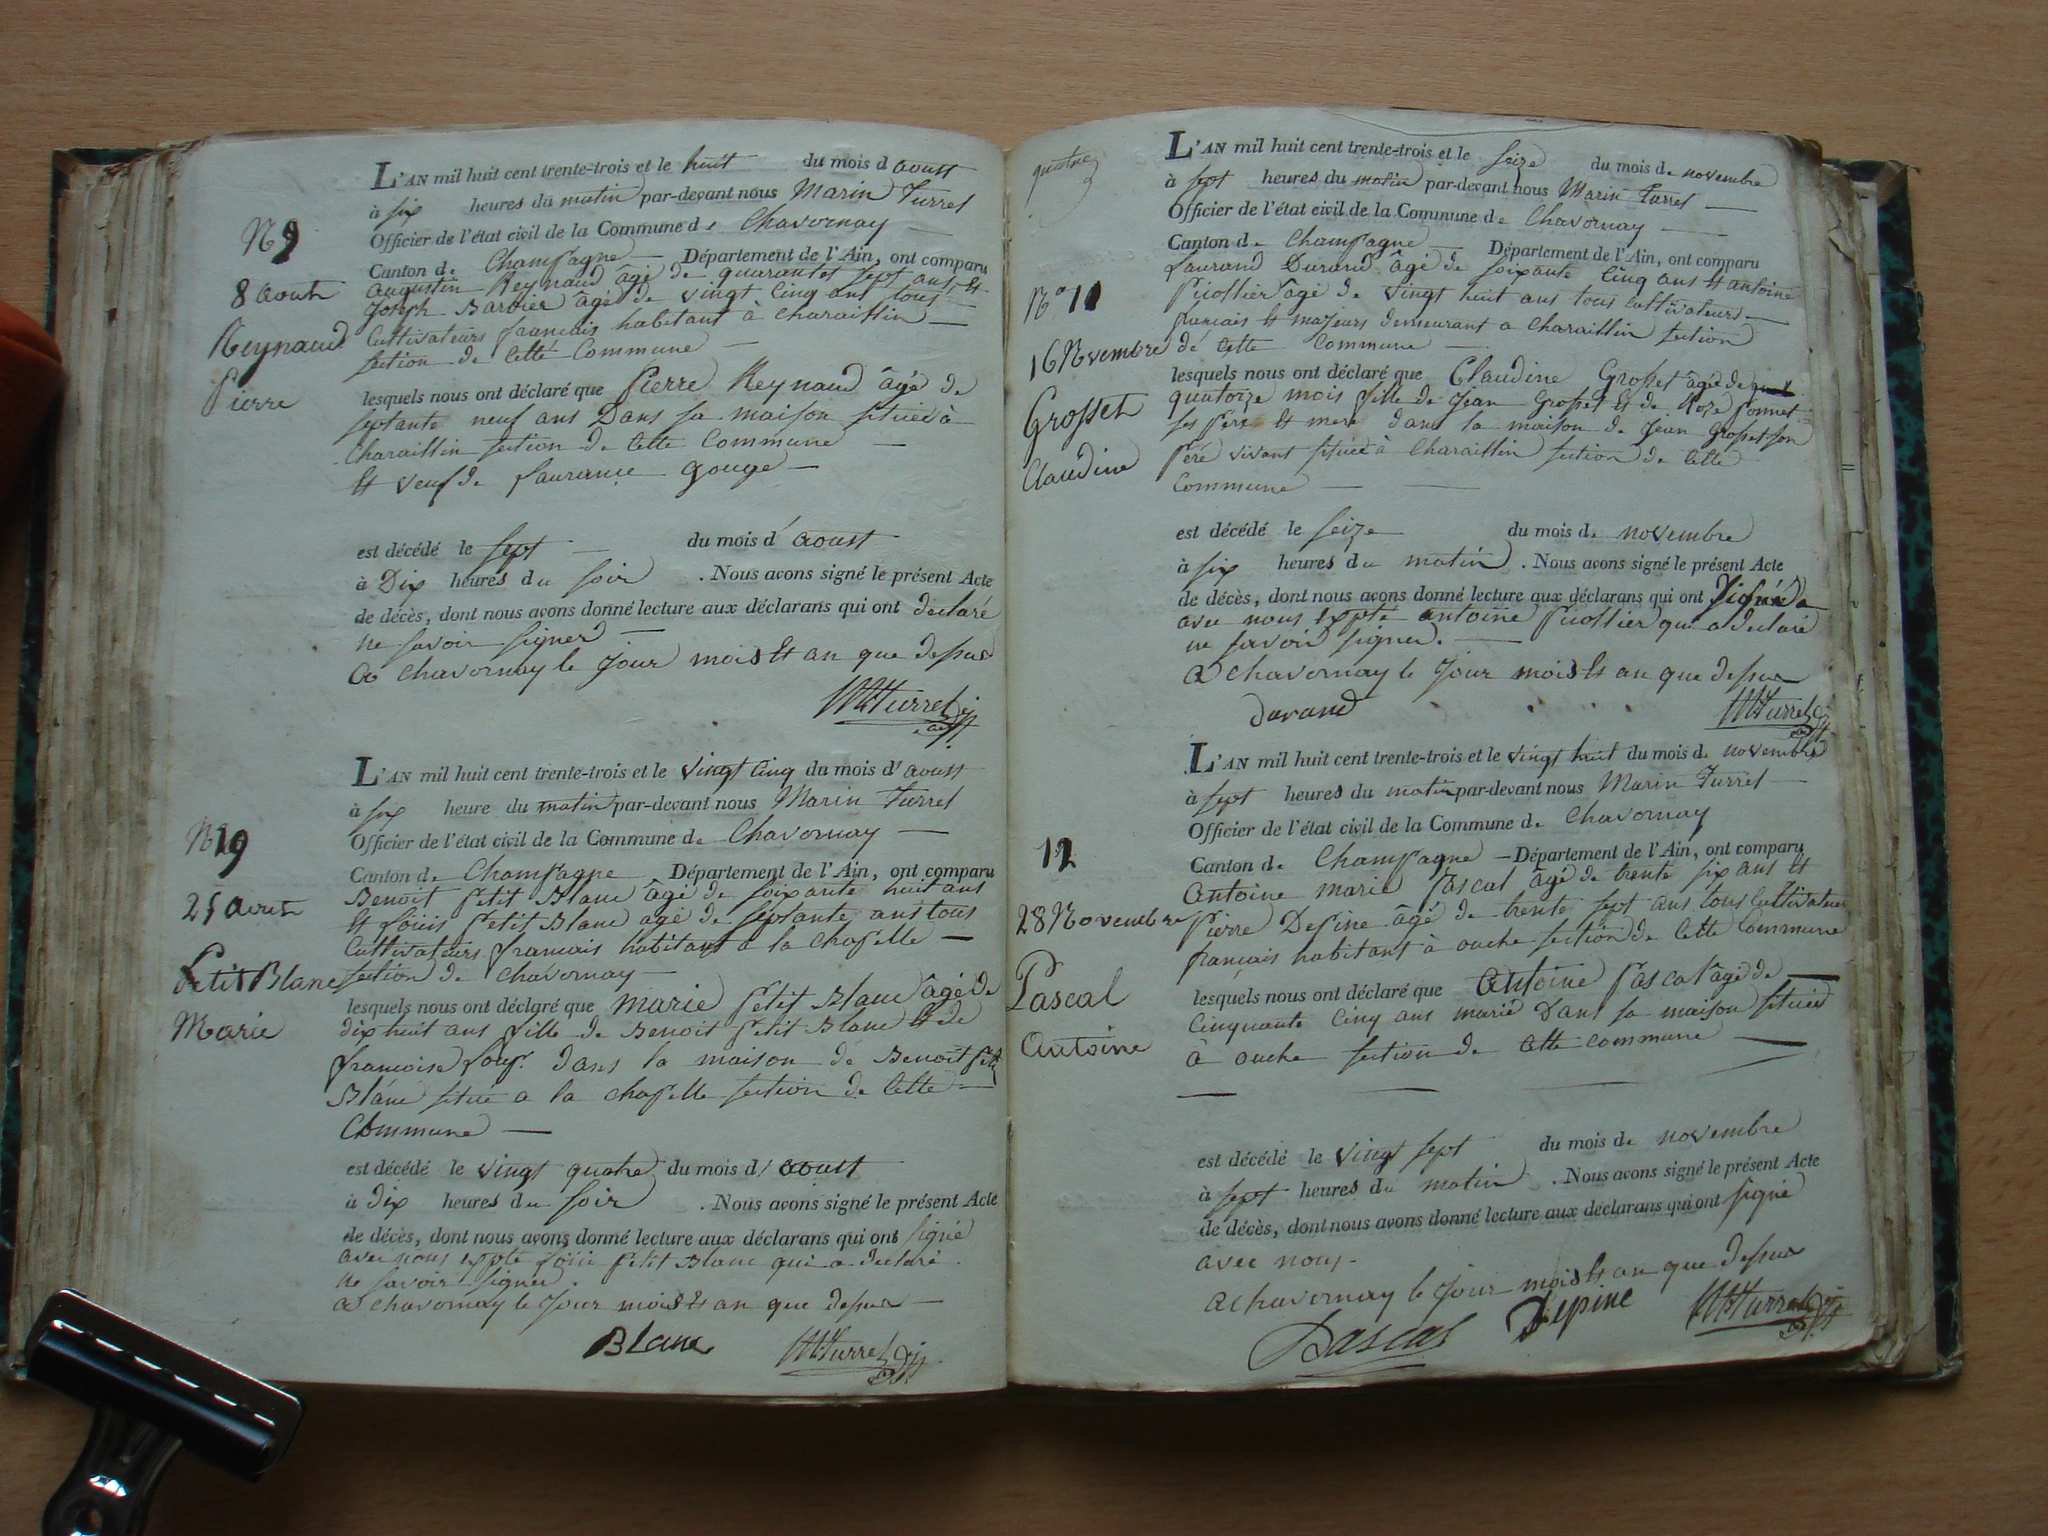 N 9
8 aout
Reynaud
Pierre
L'AN mil huit cent trente-trois et le huit du mois d aoust
à six heures du matin par-devant nous Marin Turrel
Officier de l'état civil de la Commune de Chavornay
Canton de Champagne Département de l'Ain, ont comparu
augustin Reynaud âgé de quarantes sept ans et
Joseph Barbier âgé de vingt cinq ans tous
Cultivateurs francais habitant à Charaillin
section de cette Commune
lesquels nous ont déclaré que Pierre Reynaud âgé de
septante neuf ans Dans sa maison située à
Charaillin section de cette Commune
et veuf de Laurance gouge
est décédé le sept du mois d'aoust
à Dix heures du soir . Nous avons signé le présent Acte
de décès, dont nous avons donné lecture aux déclarans qui ont declaré
ne savoir signer
a chavornay le jour mois et an que dessus
Turrel
N 19
25 aout
Petit Blanc
Marie
L'AN mil huit cent trente-trois et le vingt cinq du mois d'aoust
à six heure du matin par-devant nous Marin Turrel
Officier de l'état civil de la Commune de Chavornay
Canton de Champagne Département de l'Ain, ont comparu
Benoit Petit Blanc âgé de soixante huit ans
et Louis Petit Blanc agé de septante ans tous
Cultivateurs francais habitant a la Chapelle
section de Chavornay
lesquels nous ont déclaré que marie Petit Blanc âgé de
dix huit ans fille de Benoit Petit Blanc et de
francoise dans la maison de Benoit Petit
Blanc situé a la chapelle section de Cette
Commune
est décédé le vingt quatre du mois d'aoust
à dix heures du soir . Nous avons signé le présent Acte
de décès, dont nous avons donné lecture aux déclarans qui ont signé
avec nous expté Louis Petit Blanc qui a declaré
ne savoir signer.
a Chavornay le jour mois et an que dessus
Blanc Turrel
quatre
No 11
16 Novembre
Grosset
Claudine
L'AN mil huit cent trente-trois et le seize du mois de novembre
à sept heures du matin par-devant nous Marin Turrel
Officier de l'état civil de la Commune de Chavornay
Canton de Champagne Département de l'Ain, ont comparu
Laurand Durand âgé de soixante cinq ans et antoine
Picollier âgé de vingt huit ans tous Cultivateurs
francais et majeurs demeurant a Charaillin section
de Cette Commune
lesquels nous ont déclaré que Claudine Grosset âgée de
quatorze mois fille de Jean Grosset et de Roze Ponnet
ses père et mere dans la maison de Jean Grosset son
Père vivant située à Charaillin section de Cette
Commune
est décédé le seize du mois de novembre
à six heures du matin . Nous avons signé le présent Acte
de décès, dont nous avons donné lecture aux déclarans qui ont signé
avec nous expté antoine Picollier qui a declaré
ne savoir signer.
a Chavornay le jour mois et an que dessus
durand Turrel
12
28 Novembre
Pascal
Antoine
L'AN mil huit cent trente-trois et le vingt huit du mois de novembre
à sept heures du matin par-devant nous Marin Turrel
Officier de l'état civil de la Commune de Chavornay
Canton de Champagne Département de l'Ain, ont comparu
Antoine marie Pascal âgé de trente six ans et
Pierre Depine âgé de trente sept ans tous Cultivateurs
francais habitant à ouche section de Cette Commune
lesquels nous ont déclaré que Antoine Pascal âgé de
Cinquante Cinq ans marié Dans sa maison située
à ouche section de Cette commune
est décédé le vingt sept du mois de novembre
à sept heures du matin . Nous avons signé le présent Acte
de décès, dont nous avons donné lecture aux déclarans qui ont signé
avec nous.
a Chavornay le jour mois et an que dessus
Pascal Depine Turrel